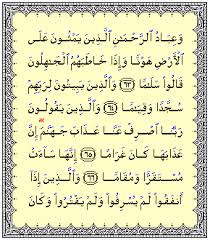 وَعِبَادُ ٱلرَّحْمَـٰنِ ٱلَّذِينَ يَمْشُونَ عَلَى
ٱلْأَرْضِ هَوْنًا وَإِذَا خَاطَبَهُمُ ٱلْجَـٰهِلُونَ
قَالُوا۟ سَلَـٰمًا ٦٣ وَٱلَّذِينَ يَبِيتُونَ لِرَبِّهِمْ
سُجَّدًا وَقِيَـٰمًا ٦٤ وَٱلَّذِينَ يَقُولُونَ
رَبَّنَا ٱصْرِفْ عَنَّا عَذَابَ جَهَنَّمَ إِنَّ
عَذَابَهَا كَانَ غَرَامًا ٦٥ إِنَّهَا سَآءَتْ
مُسْتَقَرًّا وَمُقَامًا ٦٦ وَٱلَّذِينَ إِذَآ
أَنفَقُوا۟ لَمْ يُسْرِفُوا۟ وَلَمْ يَقْتُرُوا۟ وَكَانَ